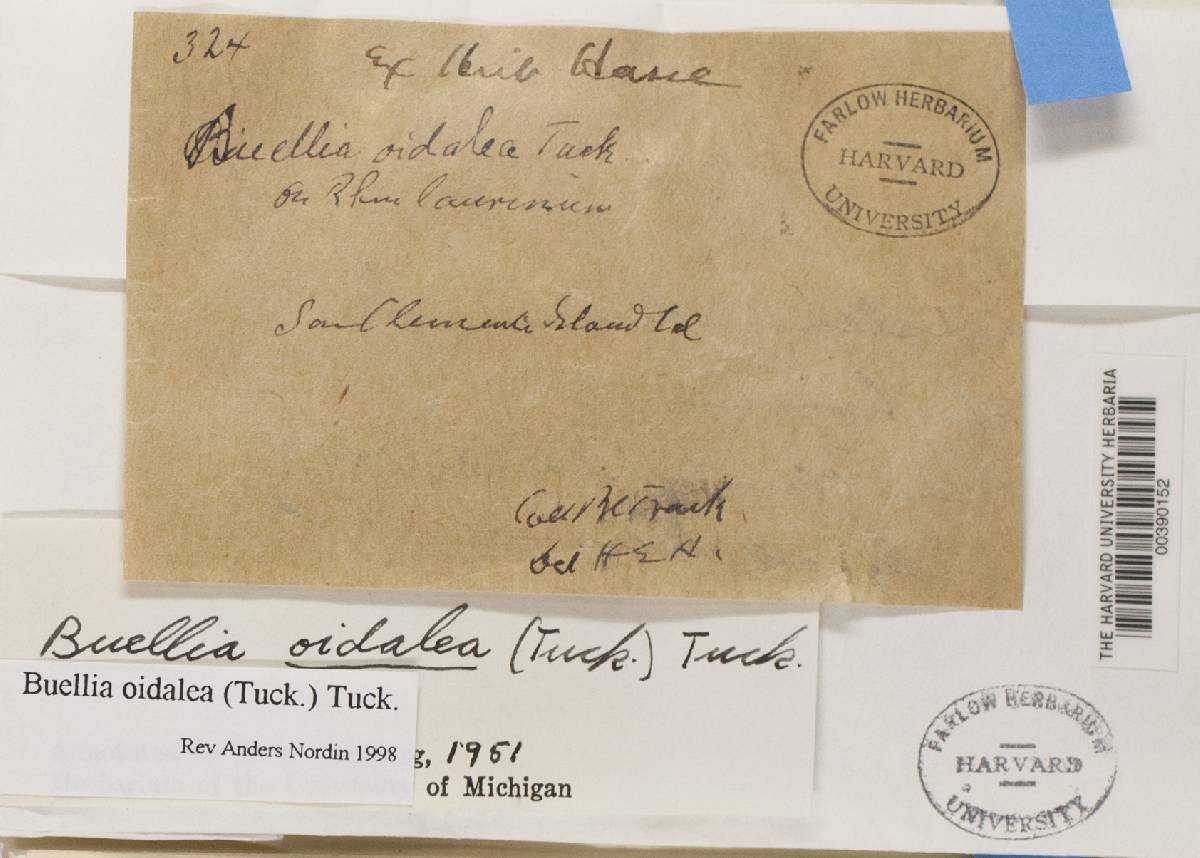 324
Ex Herb Hasse
FARLOW HERBARIUM
HARVARD
UNIVERSITY
Buellia oidalea Tuck
on Rhus laurinum
San Clemente Island Cal
Coll B Trask
det H E H.
THE HARVARD UNIVERSITY HERBARIA
00390152
Buellia oidalea (Tuck.) Tuck.
Buellia oidalea (Tuck.) Tuck.
Rev Anders Nordin 1998
g, 1951
of Michigan
FARLOW HERBARIUM
HARVARD
UNIVERSITY